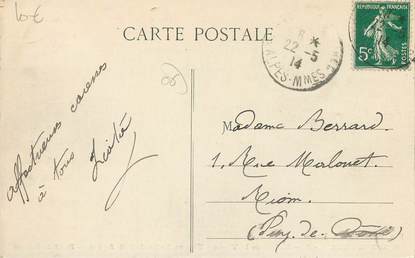 10€
CARTE POSTALE
8 *
22-5
14
ALPES-MMES
RÉPUBLIQUE FRANÇAISE
5c
POSTES
06
affectueuses caresses
à tous
Madame Berrard.
1, Rue Malouet.
Riom.
(Puy-de-Dôme)